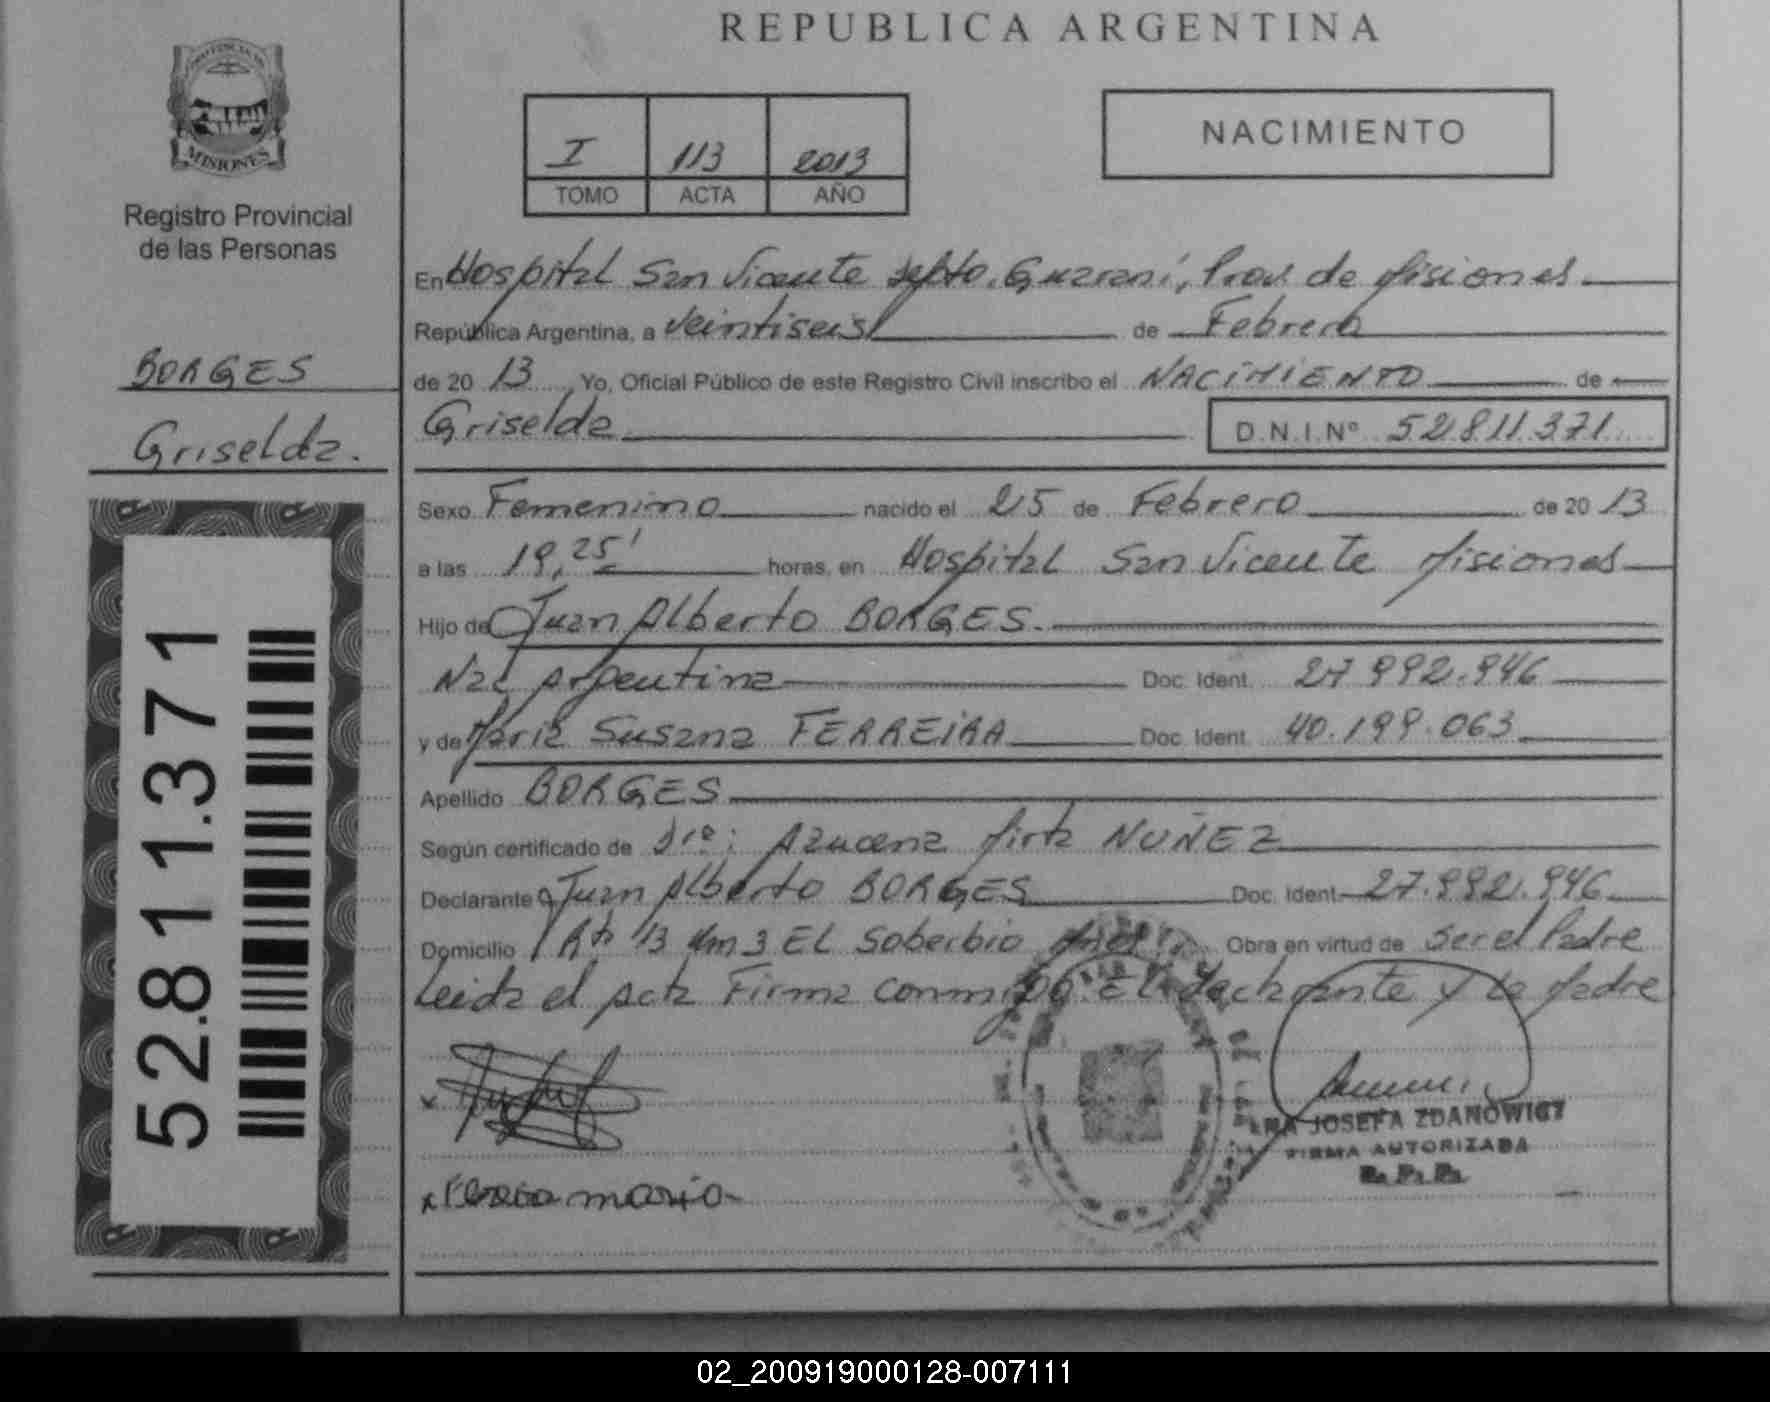 REPUBLICA ARGENTINA
MISIONES
Registro Provincial
de las Personas
BORGES
Griselda.
52.811.371
I 113 2013
TOMO ACTA AÑO
NACIMIENTO
En Hospital San Vicente depto. Guaraní, Prov de Misiones
República Argentina, a Veintiseis de Febrero
de 20 13 Yo, Oficial Público de este Registro Civil inscribo el NACIMIENTO de
Griselda D.N.I.Nº 52.811.371
Sexo Femenino nacido el 25 de Febrero de 20 13
a las 19,25' horas, en Hospital San Vicente Misiones
Hijo de Juan Alberto BORGES.
Nac Argentina Doc. Ident. 27.992.946
y de Maria Susana FERREIRA Doc. Ident. 40.199.063
Apellido BORGES
Según certificado de Dra: Azucena Mirta NUÑEZ
Declarante Juan Alberto BORGES Doc. Ident 27.992.946
Domicilio Rta 13 Km 3 EL Soberbio Obra en virtud de ser el Padre
Leida el Acta Firma conmigo El declarante y la Madre
JOSEFA ZDANOWICZ
FIRMA AUTORIZADA
R. P. P.
x maria
02_200919000128-007111